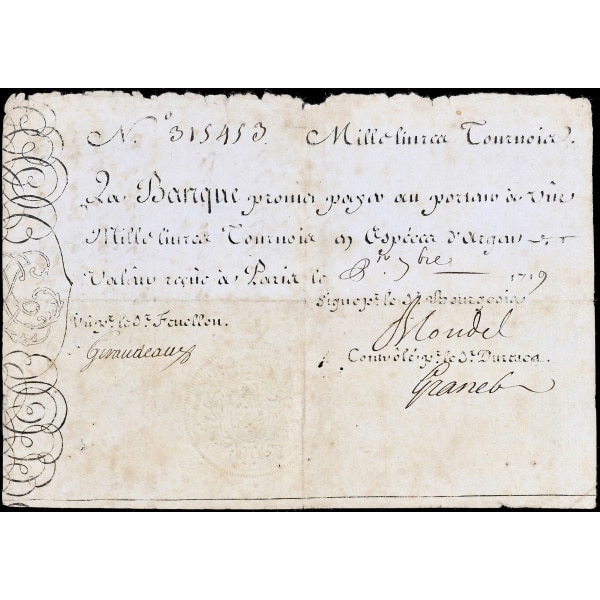 N.º 315413. Mille livres Tournois.
La Banque promet payer au porteur à Vüe
Mille livres Tournois en Especes d'Argent
Valeur reçüe à Paris le 1719
Signé pr. le Sr. Bourgeois
Vû pr. le Sr. Fenellon.
Giraudeau
Controlé pr. le Sr. Durevest.
Granet